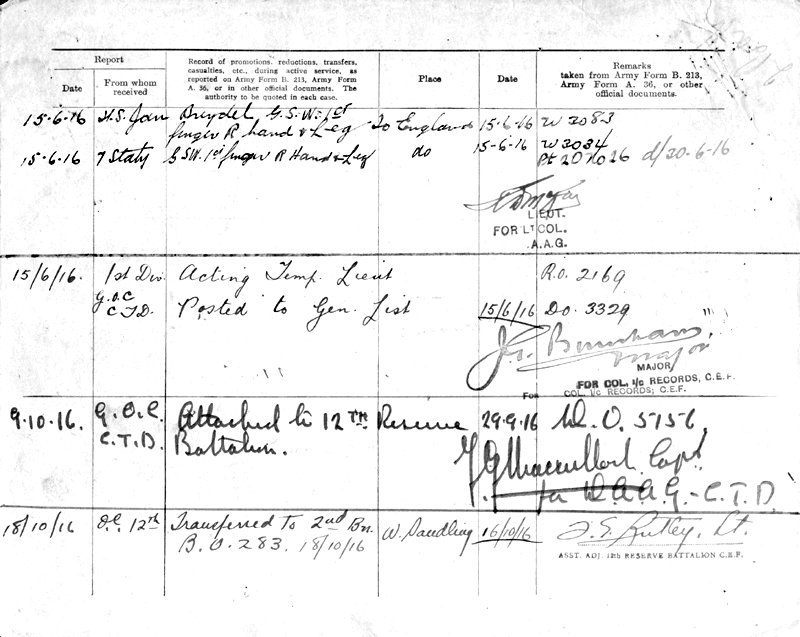 Report
Date
From whom
received
Record of promotions, reductions, transfers,
casualties, etc., during active service, as
reported on Army Form B. 213, Army Form
A. 36, or in other official documents. The
authority to be quoted in each case.
Place
Date
Remarks
taken from Army Form B. 213,
Army Form A. 36, or other
official documents.
15-6-16 H.S. Jan Breydel G.S.W. 1st
finger R hand & Leg To England 15-6-16 W 3083
15-6-16 7 Staty GSW. 1st finger R Hand & Leg do 15-6-16 W 3034
Pt 2 O No 26 d/30-6-16
LIEUT.
FOR LT COL.
A.A.G.
15/6/16. 1st Div. Acting Temp. Lieut R.O. 2169
G.O.C
C.T.D. Posted to Gen. List 15/6/16 Do. 3329 "
Major
MAJOR
FOR COL. I/c RECORDS, C.E.F.
FOR COL. I/c RECORDS, C.E.F.
9.10.16. G.O.C. Attached to 12TH Reserve 29.9.16 D.O. 5156
C.T.D. Battalion.
Capt
for D.A.A.G. - C.T.D.
18/10/16 O.C. 12th Transferred to 2nd Bn. W. Sandling 16/10/16 Lt.
B.O. 283. 18/10/16
ASST. ADJ. 12th RESERVE BATTALION C.E.F.